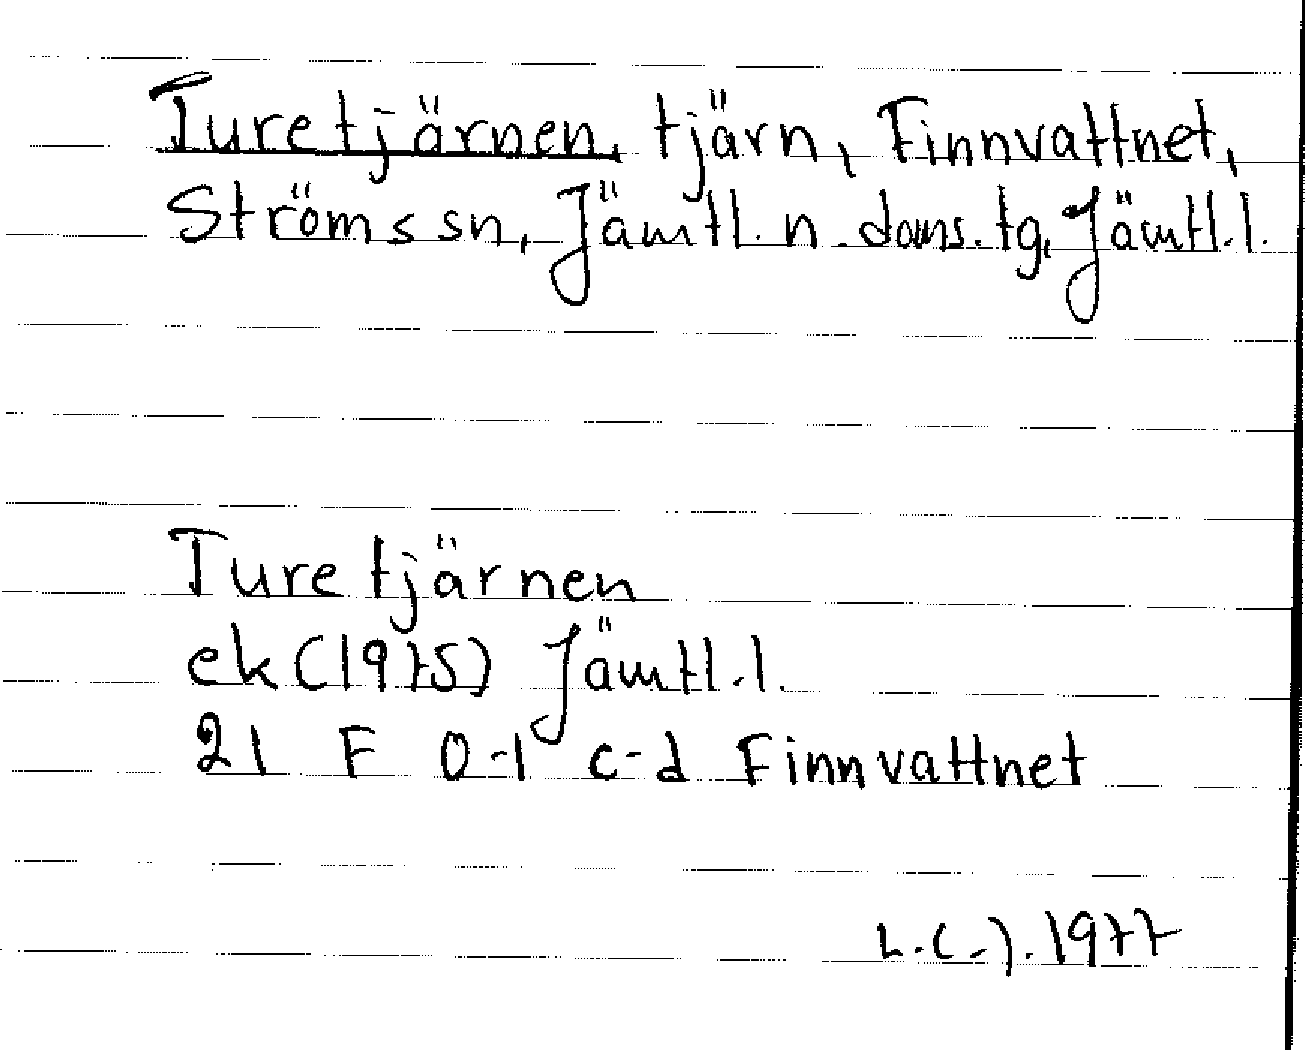 Turetjärnen, tjärn, Finnvattnet,
Ströms sn, Jämtl. n. doms. tg, Jämtl. l.
Turetjärnen
ek (1975) Jämtl. l.
21 F 0-1 c-d Finnvattnet
L.C.J. 1977